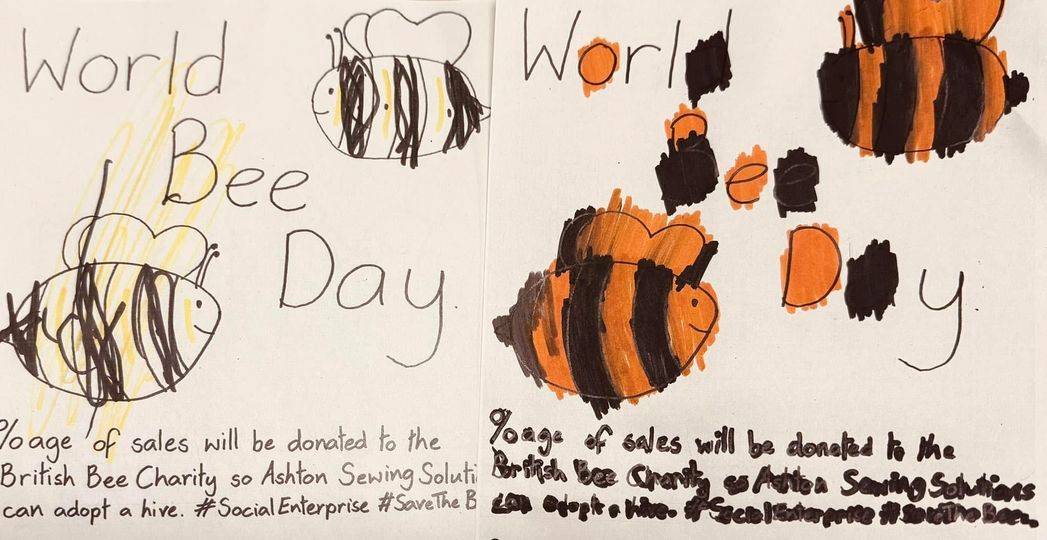 World
Bee
Day.
%age of sales will be donated to the
British Bee Charity so Ashton Sewing Soluti
can adopt a hive. #SocialEnterprise #SaveThe B
World
Bee
Day.
%age of sales will be donated to the
British Bee Charity so Ashton Sewing Solutions
can adopt a hive. #SocialEnterprise #SaveTheBees.